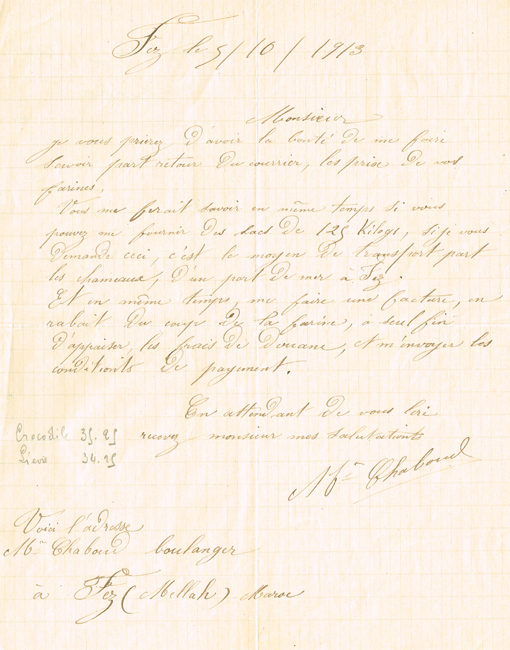 Fez le 5/10/1913
Monsieur
je vous prierez d'avoir la bonté de me faire
savoir part retour du courrier, les prix de vos
farines.
Vous me ferait savoir en même temps si vous
pouvez me fournir des sacs de 125 Kilogs, si je vous
demande ceci, c'est le moyen de transport part
les chameaux, d'un port de mer à Fez.
Et en même temps, me faire une facture, en
rabait du coup de la farine, à seul fin
d'appaiser, les frais de Douane, et m'envoyer les
conditionts de payement.
En attendant de vous lire
recevez monsieur mes salutations
Chaboud
Crocodile 35.25
34.25
Voici l'adresse
Chaboud boulanger
à Fez (Mellah) Maroc